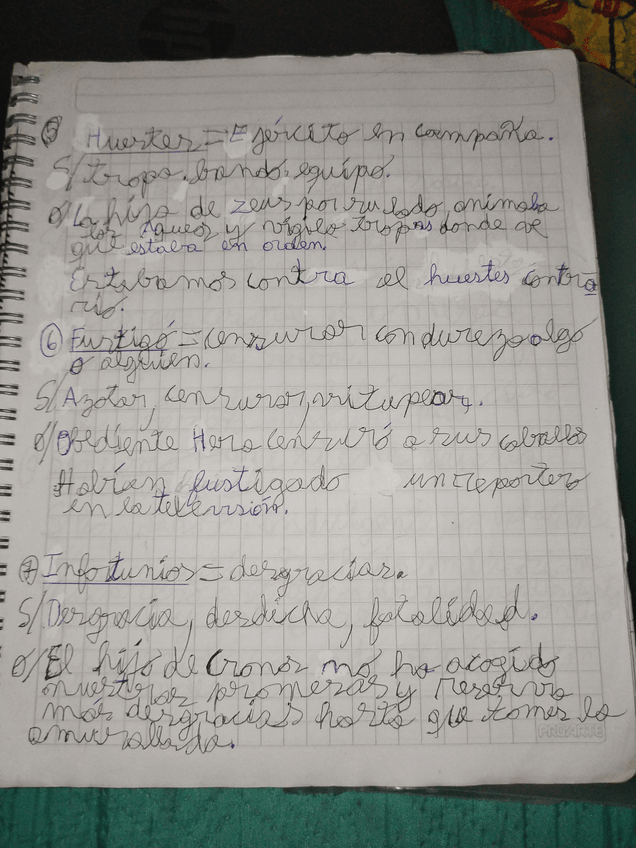 ⑤ Huestes = Ejército en campaña.
S/ tropa, bando, equipo.
O/ La hija de Zeus por su lado, animaba
los Aqueos y vigilo tropas donde
que estaba en orden.
Estabamos contra el huestes contra
rio.
⑥ Fustigó = censurar con dureza algo
o alguien.
S/ Azotar, censurar, vitupear.
O/ Obediente Hera censuró a sus caballos
Habían fustigado un reportero
en la televisión.
⑦ Infortunios = desgracias.
S/ Desgracia, desdicha, fatalidad.
O/ El hijo de Cronos no ha acogido
nuestras promesas y reserva
más desgracias hasta que tomes la
amurallada.
PROARTE